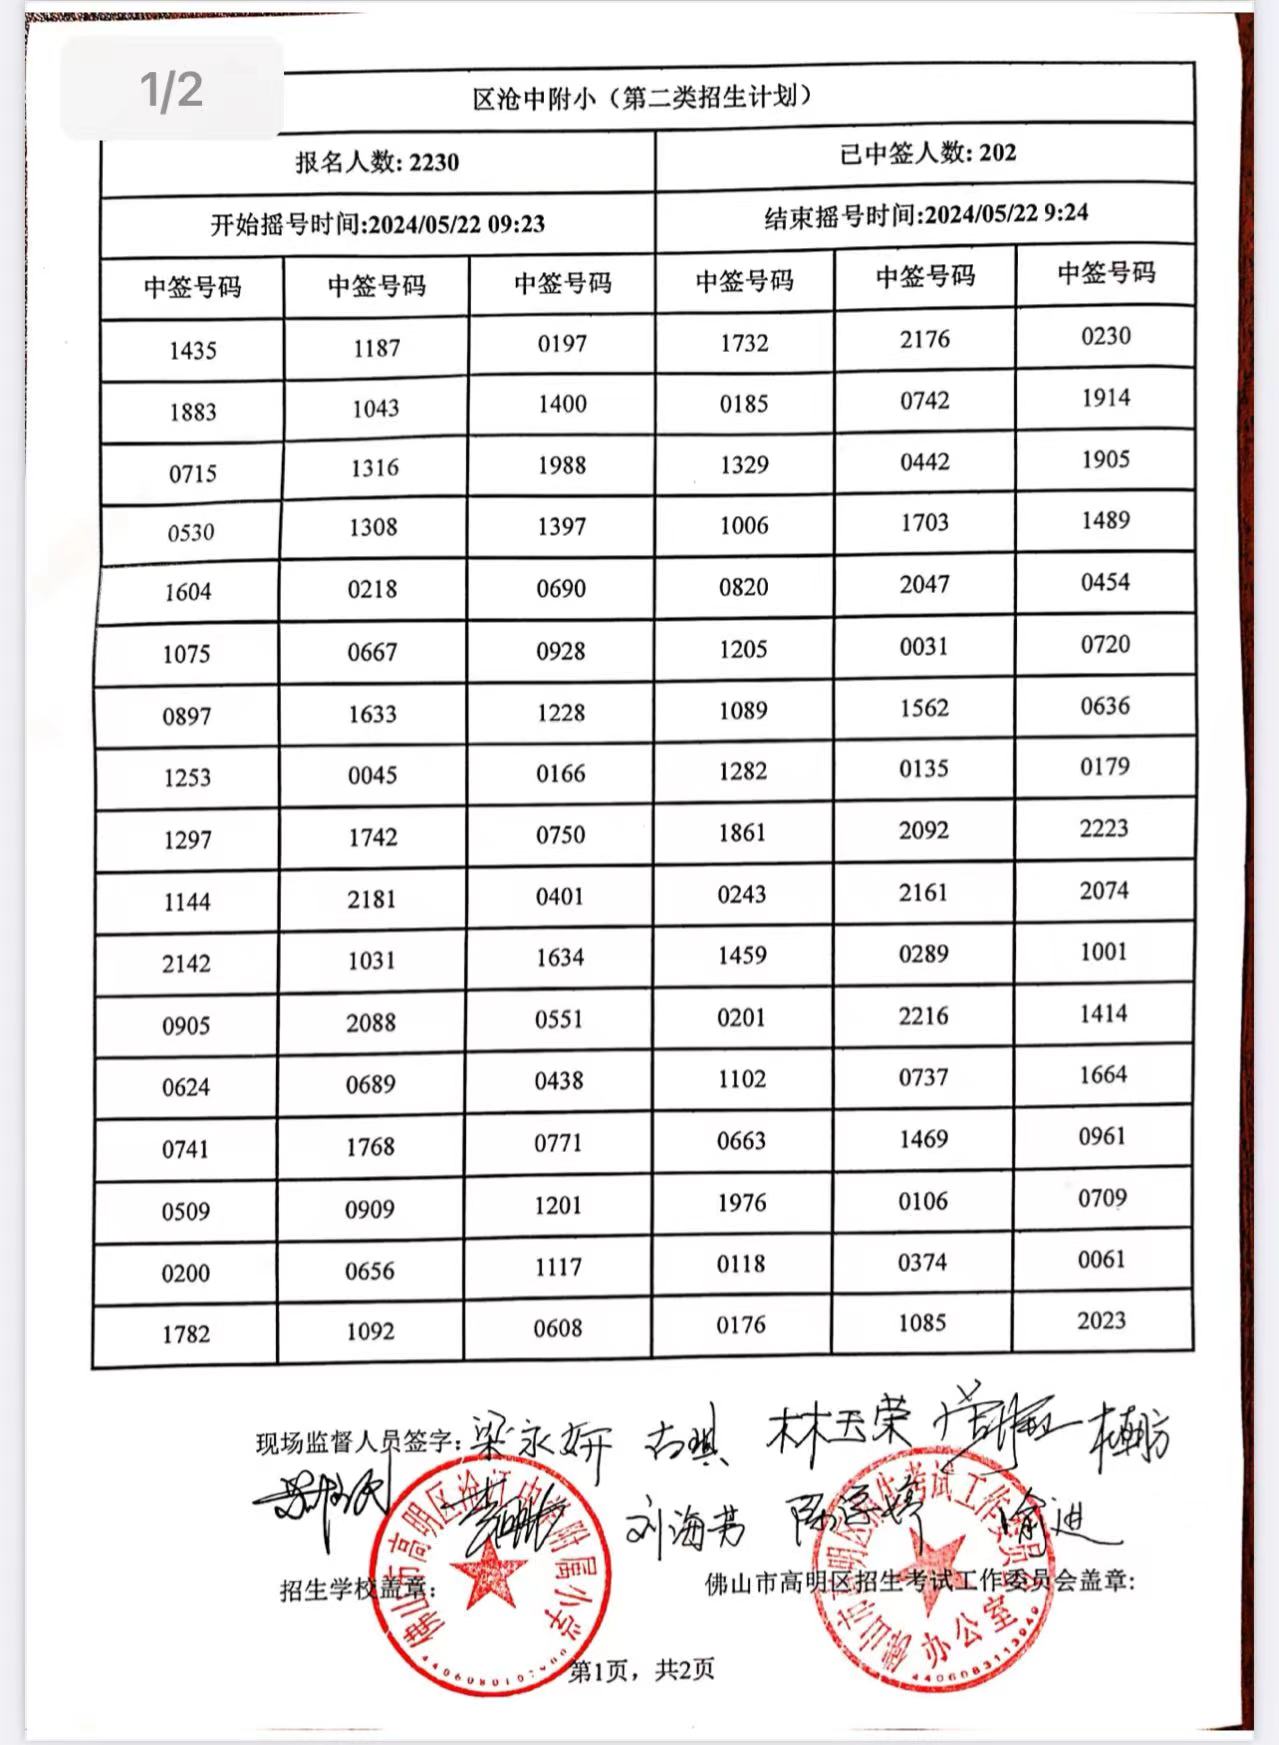 1/2
区沧中附小（第二类招生计划）
报名人数: 2230 已中签人数: 202
开始摇号时间:2024/05/22 09:23 结束摇号时间:2024/05/22 9:24
中签号码 中签号码 中签号码 中签号码 中签号码 中签号码
1435 1187 0197 1732 2176 0230
1883 1043 1400 0185 0742 1914
0715 1316 1988 1329 0442 1905
0530 1308 1397 1006 1703 1489
1604 0218 0690 0820 2047 0454
1075 0667 0928 1205 0031 0720
0897 1633 1228 1089 1562 0636
1253 0045 0166 1282 0135 0179
1297 1742 0750 1861 2092 2223
1144 2181 0401 0243 2161 2074
2142 1031 1634 1459 0289 1001
0905 2088 0551 0201 2216 1414
0624 0689 0438 1102 0737 1664
0741 1768 0771 0663 1469 0961
0509 0909 1201 1976 0106 0709
0200 0656 1117 0118 0374 0061
1782 1092 0608 0176 1085 2023
现场监督人员签字: 梁永妍 古琪 林玉荣
刘海芳
招生学校盖章: 佛山市高明区招生考试工作委员会盖章:
佛山市高明区沧江中学附属小学
佛山市高明区招生考试工作委员会
办公室
4406083113949
第1页，共2页